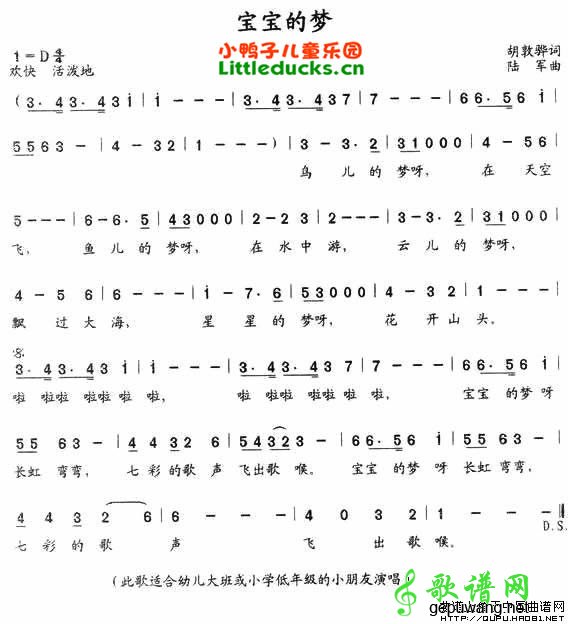 宝宝的梦
1=D 4/4
小鸭子儿童乐园
胡敦骅词
欢快 活泼地
Littleducks.cn
陆军曲
(3· 4 3· 4 3 1̇ | 1̇ - - - | 3· 4 3· 4 3 7 | 7 - - - | 6 6· 5 6 1̇ |
5 5 6 3 - | 4 - 3 2 | 1 - - - ) | 3 - 3· 2 | 3 1 0 0 0 | 4 - 5 6
鸟 儿 的 梦呀, 在 天空
5 - - - | 6 - 6· 5 | 4 3 0 0 0 | 2 - 2 3 | 2 - - - | 3 - 3· 2 | 3 1 0 0 0 |
飞, 鱼 儿 的 梦呀, 在 水 中 游, 云 儿 的 梦呀,
4 - 5 6 | 6 - - - | 1̇ - 7· 6 | 5 3 0 0 0 | 4 - 3 2 | 1 - - - |
飘 过 大 海, 星 星 的 梦呀, 花 开 山 头。
3· 4 3· 4 3 1̇ | 1̇ - - - | 3· 4 3· 4 3 7 | 7 - - - | 6 6· 5 6 1̇ |
啦 啦啦 啦啦啦 啦, 啦 啦啦 啦啦啦 啦, 宝宝 的梦 呀
5 5 6 3 - | 4 4 3 2 6 | 5 4 3 2 3 - | 6 6· 5 6 1̇ | 5 5 6 3 - |
长虹 弯弯, 七 彩的歌 声 飞出歌 喉。 宝宝 的梦 呀 长虹 弯弯,
4 4 3 2 6 | 6 - - - | 4 0 3 2 | 1 - - - ‖
D.S.
七 彩的 歌 声 飞 出 歌 喉。
(此歌适合幼儿大班或小学低年级的小朋友演唱)
歌谱网
gepuwang.net
http://QUPU.HAO81.NET